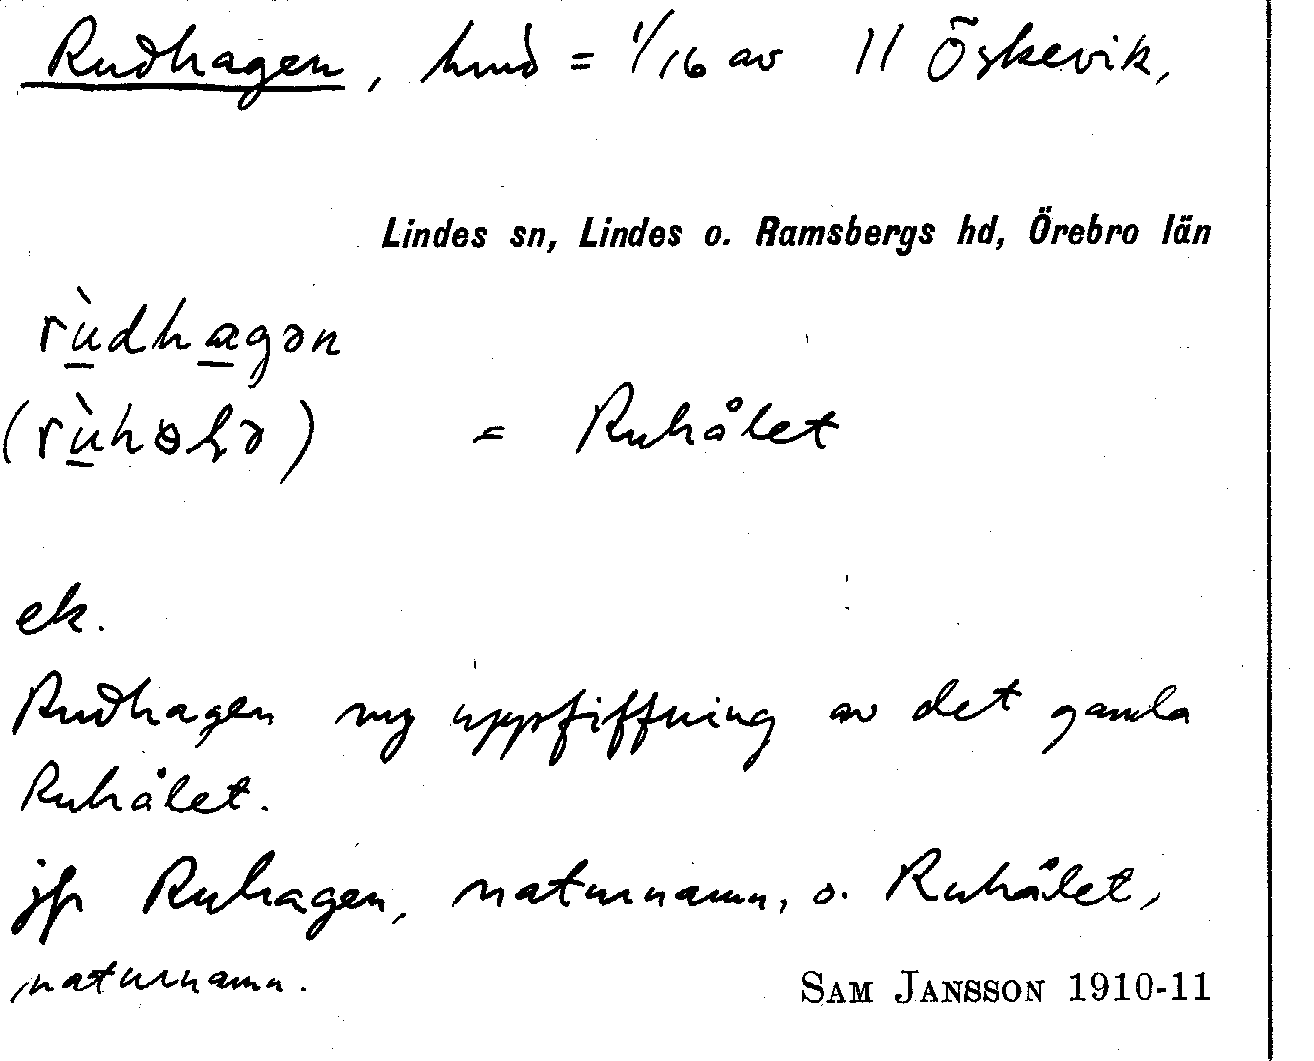 Rudhagen, hmd = 1/16 av 11 Öskevik,
Lindes sn, Lindes o. Ramsbergs hd, Örebro län
rù̱dha̱gən
= Ruhålet
ek.
Rudhagen ny uppfiffning av det gamla
Ruhålet.
jfr Ruhagen, naturnamn, o. Ruhålet,
naturnamn.
SAM JANSSON 1910-11